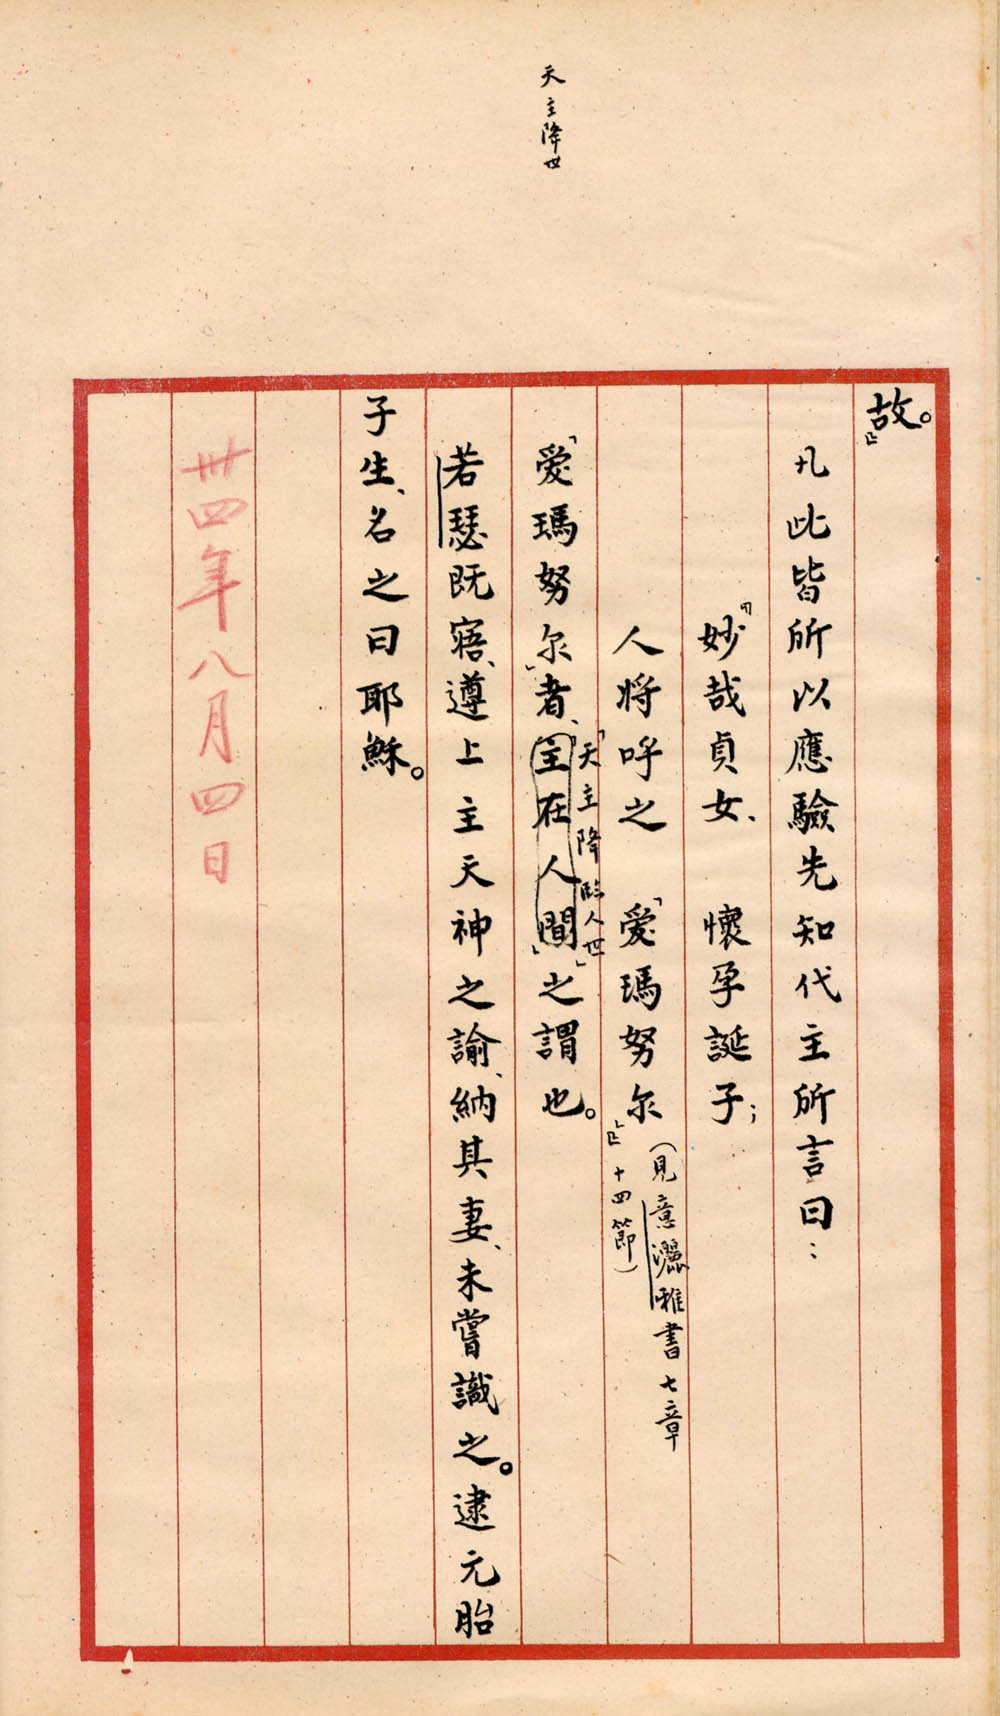 天主降世
故。」
凡此皆所以應驗先知代主所言曰：
『妙哉貞女、懷孕誕子；
人將呼之「愛瑪努尔」』（見意灑雅書七章
十四節）
「愛瑪努尔」者、「主在人間」之謂也。
「天主降臨人世」
若瑟既寤、遵上主天神之諭、納其妻、未嘗識之。逮元胎
子生、名之曰耶穌。
卅四年八月四日